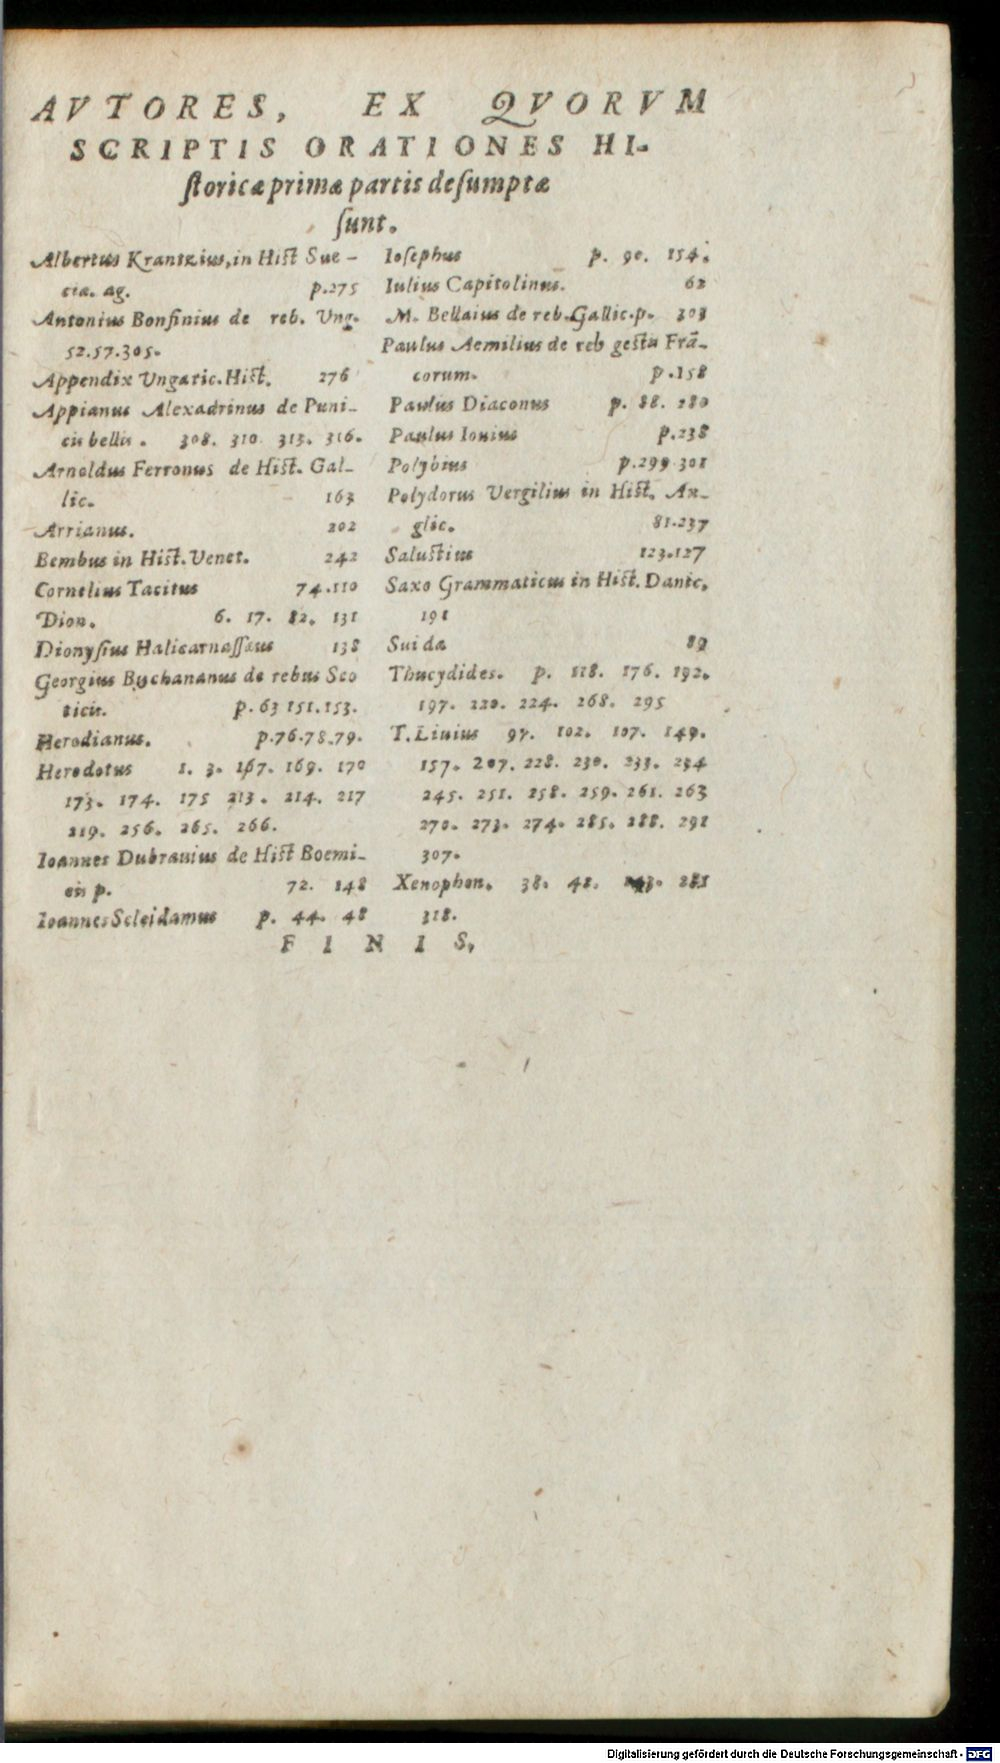 AVTORES, EX QVORVM
SCRIPTIS ORATIONES HI-
ſtoricæ primæ partis deſumptæ
ſunt.
Albertus Krantzius, in Hiſt Sue-
cia. ag. p.275
Antonius Bonfinius de reb. Ung.
52.57.305.
Appendix Ungaric. Hiſt. 276
Appianus Alexadrinus de Puni-
cis bellis. 308. 310. 313. 316.
Arnoldus Ferronus de Hiſt. Gal-
lic. 163
Arrianus. 202
Bembus in Hiſt. Venet. 242
Cornelius Tacitus 74.110
Dion. 6. 17. 82. 131
Dionyſius Halicarnaſſæus 138
Georgius Buchananus de rebus Sco
ticis. p. 63 151.153.
Herodianus. p.76.78.79.
Herodotus 1. 3. 167. 169. 170
173. 174. 175 213. 214. 217
219. 256. 265. 266.
Ioannes Dubrauius de Hiſt Boemi-
cis p. 72. 148
Ioannes Scleidamus p. 44. 48
Ioſephus p. 90. 154.
Iulius Capitolinus. 62
M. Bellaius de reb. Gallic. p. 303
Paulus Aemilius de reb geſtis Frã-
corum. p.158
Paulus Diaconus p. 88. 280
Paulus Iouius p.238
Polybius p.299.301
Polydorus Vergilius in Hiſt. An-
glic. 81.237
Saluſtius 123.127
Saxo Grammaticus in Hiſt. Danic.
191
Suida 89
Thucydides. p. 118. 176. 192.
197. 220. 224. 268. 295
T. Liuius 97. 102. 107. 149.
157. 207. 228. 230. 233. 234
245. 251. 258. 259. 261. 263
270. 273. 274. 285. 288. 291
307.
Xenophon. 38. 42. 281
318.
FINIS,
Digitalisierung gefördert durch die Deutsche Forschungsgemeinschaft - DFG